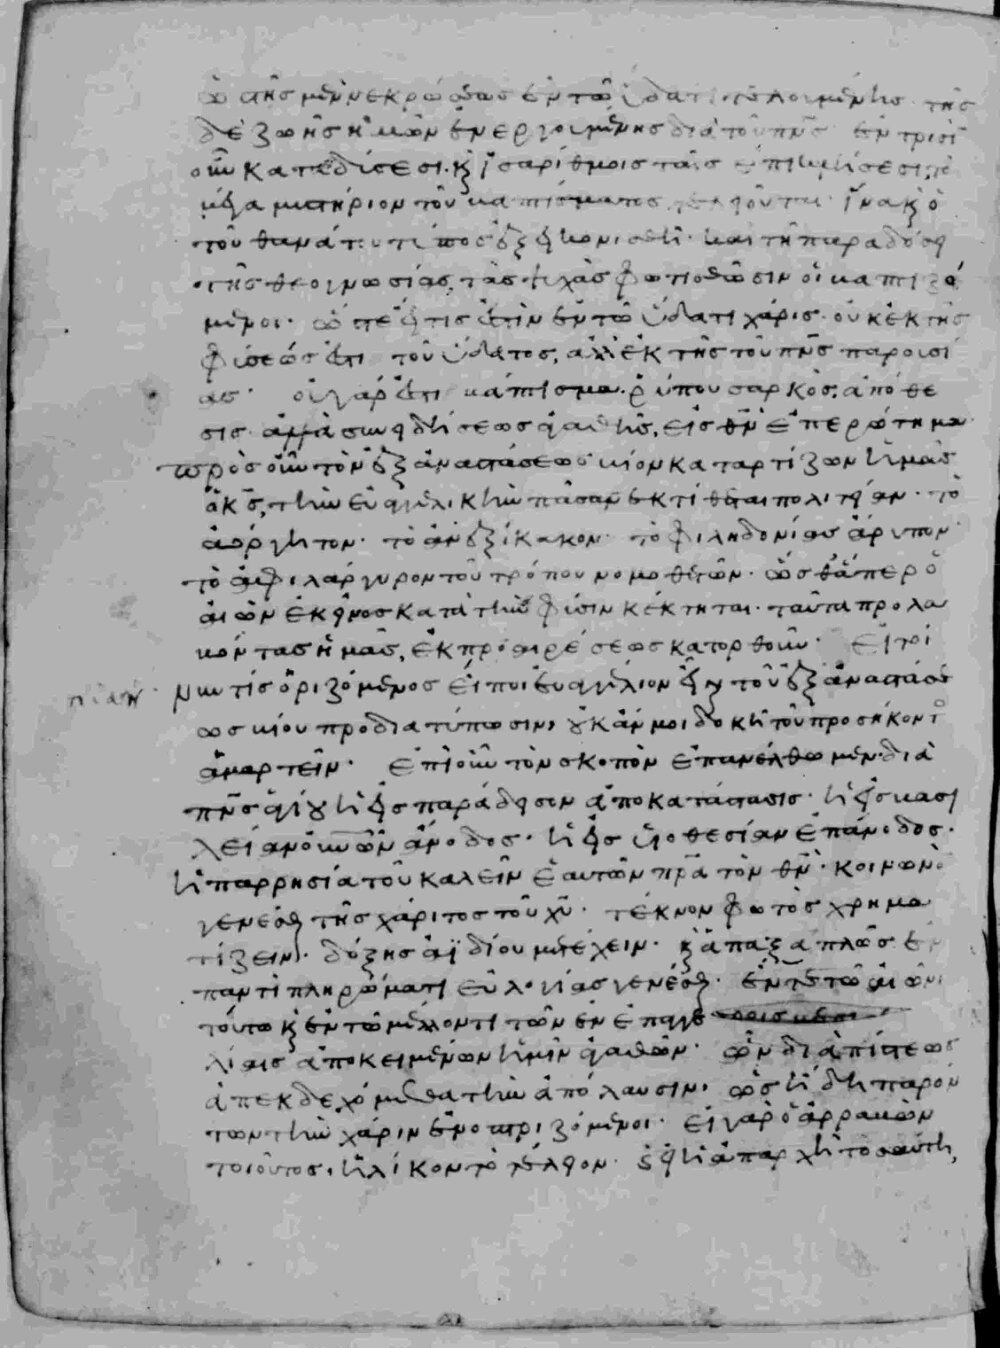 ω της μὲν νεκρώσεως ἐν τῶ ὕδατι τελουμένης· τῆς
δὲ ζωῆς ἡμῶν ἐνεργουμένης διὰ τοῦ πνς· ἐν τρισὶ
οὖν καταδύσεσι· κ ἰσαρίθμοις ταῖς ἐπικλήσεσι, τὸ
μέγα μυστήριον τοῦ βαπτίσματος τελειοῦται· ἵνα κ ὁ
τοῦ θανάτου τύπος ἐξεικονισθῆ· καὶ τῆ παραδόσει
τῆς θεογνωσίας, τὰς ψυχὰς φωτισθῶσιν οἱ βαπτιζό
μενοι· ὥστε εἴ τις ἐστὶν ἐν τῶ ὕδατι χάρις· οὐκ ἐκ τῆς
φύσεώς ἐστι τοῦ ὕδατος, ἀλλ' ἐκ τῆς τοῦ πνς παρουσί
ας· οὐ γάρ ἐστι βάπτισμα ῥύπου σαρκὸς, ἀπόθε
σις· ἀλλὰ συνειδήσεως ἀγαθῆς, εἰς θν ἐπερώτημα·
πρὸς οὖν τὸν ἐξ ἀναστάσεως βίον καταρτίζων ἡμᾶς
ὁ κς, τὴν εὐαγγελικὴν πᾶσαν ἐκτίθεται πολιτείαν· τὸ
ἀόργητον· τὸ ἀνεξίκακον· τὸ φιληδονίας ἀρύπον·
τὸ ἀφιλάργυρον τοῦ τρόπου νομοθετῶν· ὥσθ' ἅπερ ὁ
αἰὼν ἐκεῖνος κατὰ τὴν φύσιν κέκτηται· ταῦτα προλα
βόντας ἡμᾶς, ἐκ προαιρέσεως κατορθοῦν· εἰ τοί
νυν τίς ὁριζόμενος εἴποι εὐαγγέλιον εἶναι τοῦ ἐξ ἀναστάσε
ως βίου προδιατύπωσιν, οὐκ ἄν μοι δοκῆ τοῦ προσήκοντος
ἁμαρτεῖν· ἐπὶ οὖν τὸν σκοπὸν ἐπανέλθωμεν· διὰ
πνς ἁγίου ἡ εἰς παράδεισον ἀποκατάστασις· ἡ εἰς βασι
λείαν οὐνῶν ἄνοδος· ἡ εἰς υἱοθεσίαν ἐπάνοδος·
ἡ παρρησία τοῦ καλεῖν ἑαυτῶν πρα τὸν θν· κοινωνὸν
γενέσθαι τῆς χάριτος τοῦ χυ· τέκνον φωτὸς χρημα
τίζειν· δόξης ἀϊδίου μετέχειν· κ ἁπαξαπλῶς ἐν
παντὶ πληρώματι εὐλογίας γενέσθαι· ἔν τε τῶ αἰῶνι
τούτω κ ἐν τῶ μέλλοντι τῶν ἐν ἐπαγγε
λίαις ἀποκειμένων ἡμῖν ἀγαθῶν· ὧν διὰ πίστεως
ἀπεκδεχόμεθα τὴν ἀπόλαυσιν, ὡς ἤδη παρόν
των τὴν χάριν ἐνοπτριζόμενοι· εἰ γὰρ ὁ ἀρραβὼν
τοιοῦτος, ἡλίκον τὸ τέλειον· κ εἰ ἡ ἀπαρχὴ τοσαύτη,